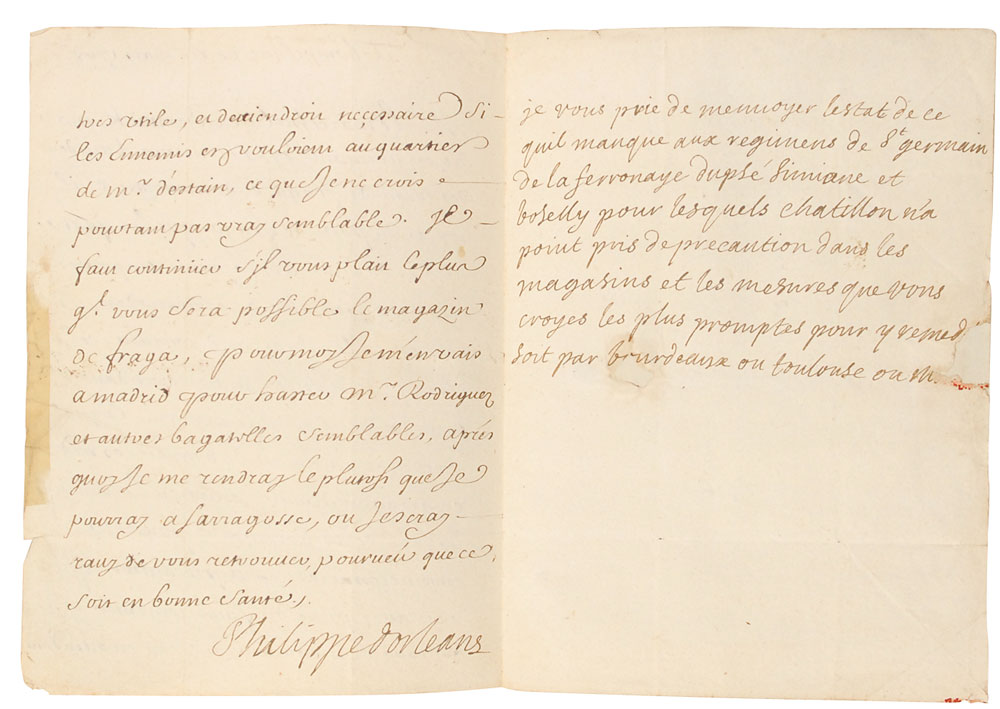 tres utile, et deviendroit necessaire si
les Ennemis en vouloient au quartier
de mr. destain, ce que Je ne crois
pourtant pas vray semblable. Il
faut continuer s'il vous plait le plus
qt. vous sera possible le magazin
de fraga, pour moy Je m'en vais
a madrid pour haster Mr. Rodriguez
et autres bagatelles semblables, apres
quoy Je me rendray le plutost que Je
pourray a sarragosse, ou Je seray
ravy de vous retrouver, pourveü que ce
soit en bonne santé.
Philippe dorleans
je vous prie de menvoyer lestat de ce
quil manque aux regimens de St germain
de la ferronaye duplsé Simiane et
boselly pour lesquels chatillon n'a
point pris de precaution dans les
magasins et les mesures que vous
croyes les plus promptes pour y remed
soit par bourdeaux ou toulouse ou